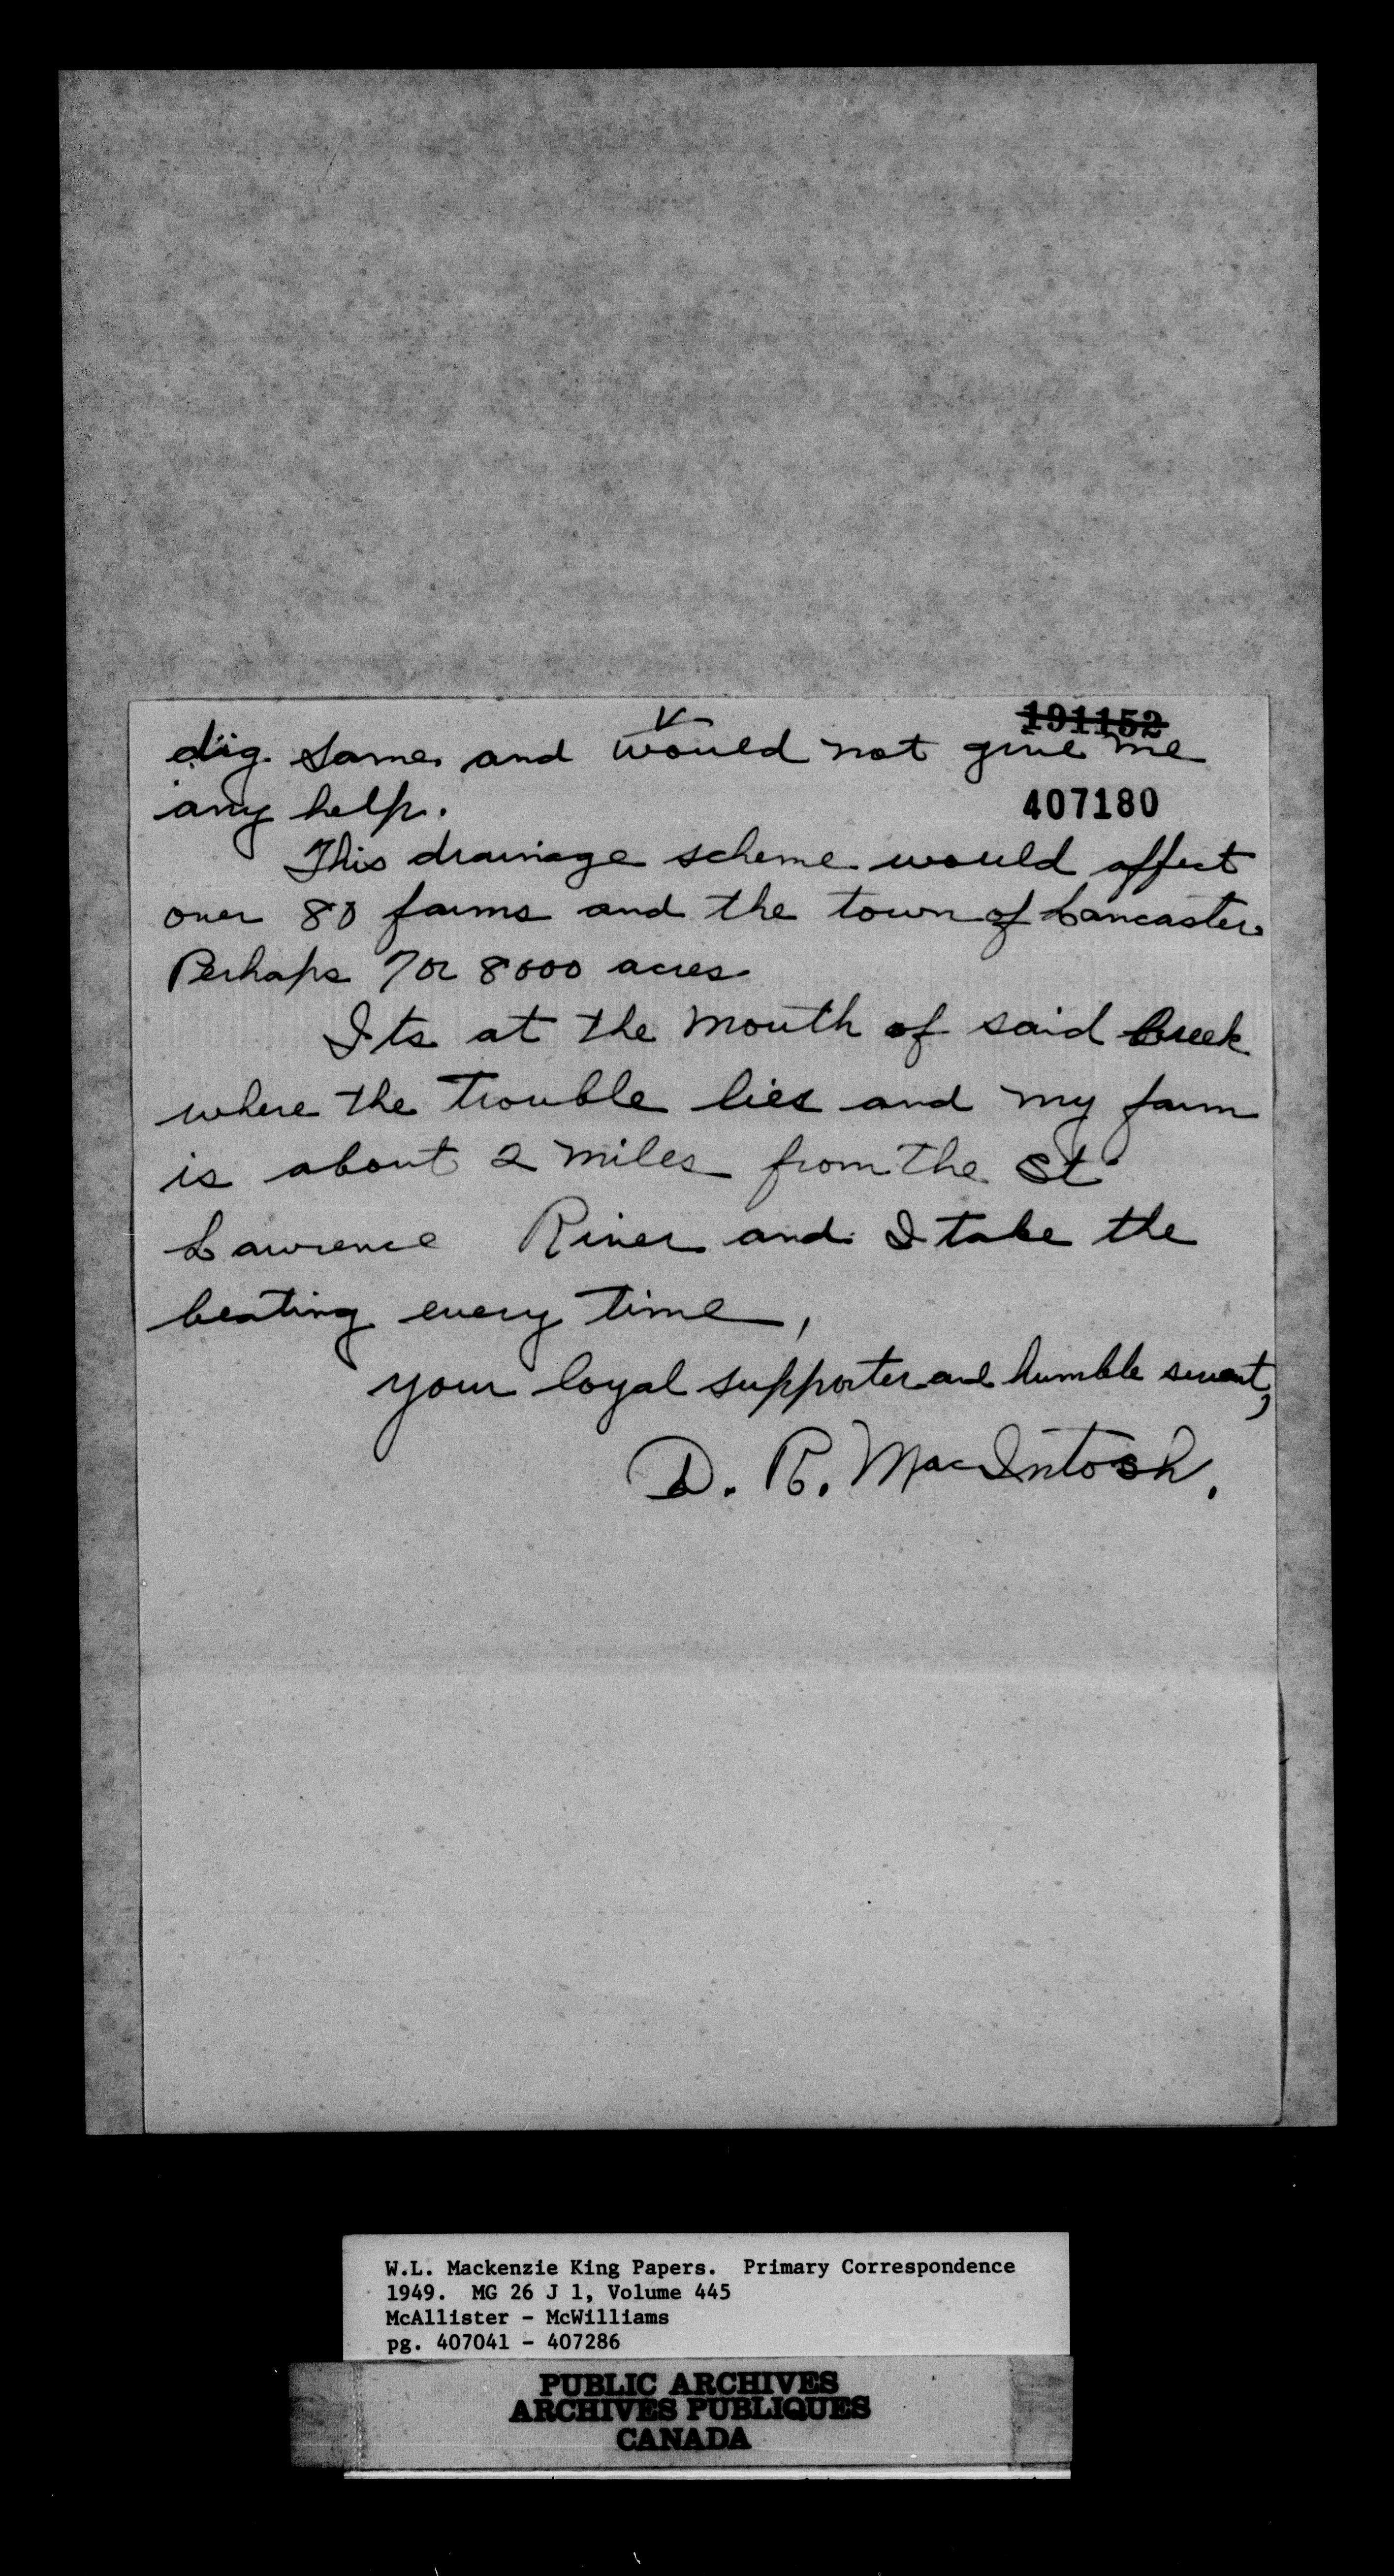 V
191152
dig same and would not give me
any help.
407180
This drainage scheme would affect
over 80 farms and the town of Lancaster.
Perhaps 7 or 8000 acres
Its at the mouth of said Creek
where the trouble lies and my farm
is about 2 miles from the St
Lawrence River and I take the
beating every time,
your loyal supporter and humble servant,
D. R. MacIntosh.
W.L. Mackenzie King Papers. Primary Correspondence
1949. MG 26 J 1, Volume 445
McAllister - McWilliams
pg. 407041 - 407286
PUBLIC ARCHIVES
ARCHIVES PUBLIQUES
CANADA